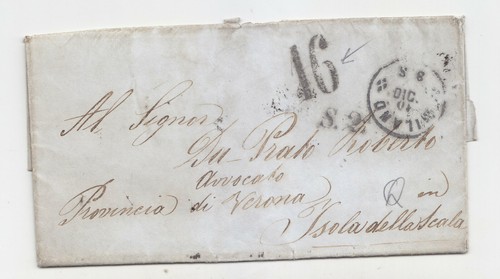 16
S. 2
MILANO
10
DIC.
8 S
Al Signor
Da Prato Roberto
Avvocato
Provincia di Verona in
Isola della Scala